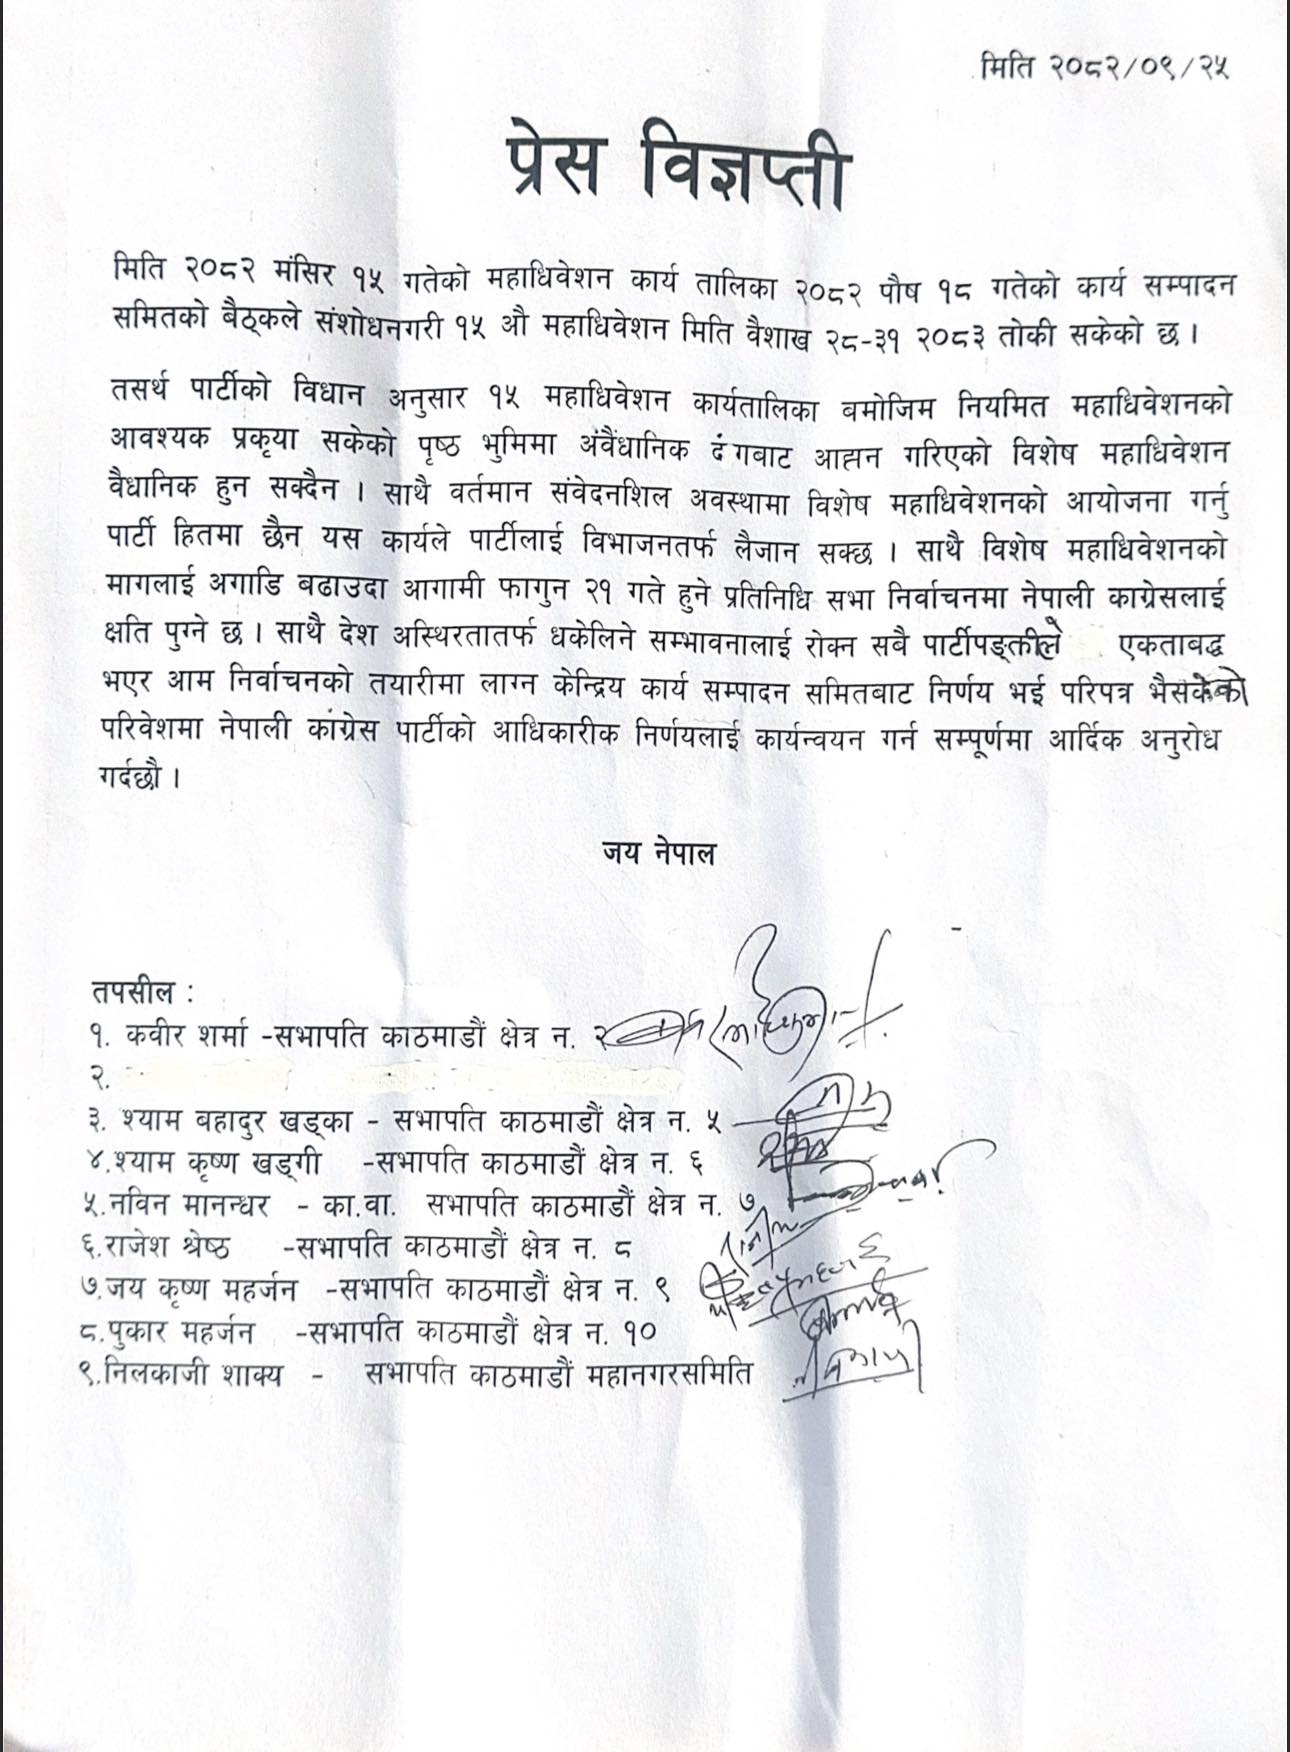 मिति २०८२/०९/२५
प्रेस विज्ञप्ती
मिति २०८२ मंसिर १५ गतेको महाधिवेशन कार्य तालिका २०८२ पौष १८ गतेको कार्य सम्पादन
समितको बैठ्कले संशोधनगरी १५ औ महाधिवेशन मिति वैशाख २८-३१ २०८३ तोकी सकेको छ ।
तसर्थ पार्टीको विधान अनुसार १५ महाधिवेशन कार्यतालिका बमोजिम नियमित महाधिवेशनको
आवश्यक प्रकृया सकेको पृष्ठ भुमिमा अंवैंधानिक दंगबाट आह्मन गरिएको विशेष महाधिवेशन
वैधानिक हुन सक्दैन । साथै वर्तमान संवेदनशिल अवस्थामा विशेष महाधिवेशनको आयोजना गर्नु
पार्टी हितमा छैन यस कार्यले पार्टीलाई विभाजनतर्फ लैजान सक्छ । साथै विशेष महाधिवेशनको
मागलाई अगाडि बढाउदा आगामी फागुन २१ गते हुने प्रतिनिधि सभा निर्वाचनमा नेपाली काग्रेसलाई
क्षति पुग्ने छ । साथै देश अस्थिरतातर्फ धकेलिने सम्भावनालाई रोक्न सबै पार्टीपङ्क्तीले एकताबद्ध
भएर आम निर्वाचनको तयारीमा लाग्न केन्द्रिय कार्य सम्पादन समितबाट निर्णय भई परिपत्र भैसकेको
परिवेशमा नेपाली कांग्रेस पार्टीको आधिकारीक निर्णयलाई कार्यन्वयन गर्न सम्पूर्णमा आर्दिक अनुरोध
गर्दछौ ।
जय नेपाल
तपसील :
१. कवीर शर्मा -सभापति काठमाडौं क्षेत्र न. २
२.
३. श्याम बहादुर खड्का - सभापति काठमाडौं क्षेत्र न. ५
४.श्याम कृष्ण खड्गी -सभापति काठमाडौं क्षेत्र न. ६
५.नविन मानन्धर - का.वा. सभापति काठमाडौं क्षेत्र न. ७
६.राजेश श्रेष्ठ -सभापति काठमाडौं क्षेत्र न. ८
७.जय कृष्ण महर्जन -सभापति काठमाडौं क्षेत्र न. ९
८.पुकार महर्जन -सभापति काठमाडौं क्षेत्र न. १०
९.निलकाजी शाक्य - सभापति काठमाडौं महानगरसमिति